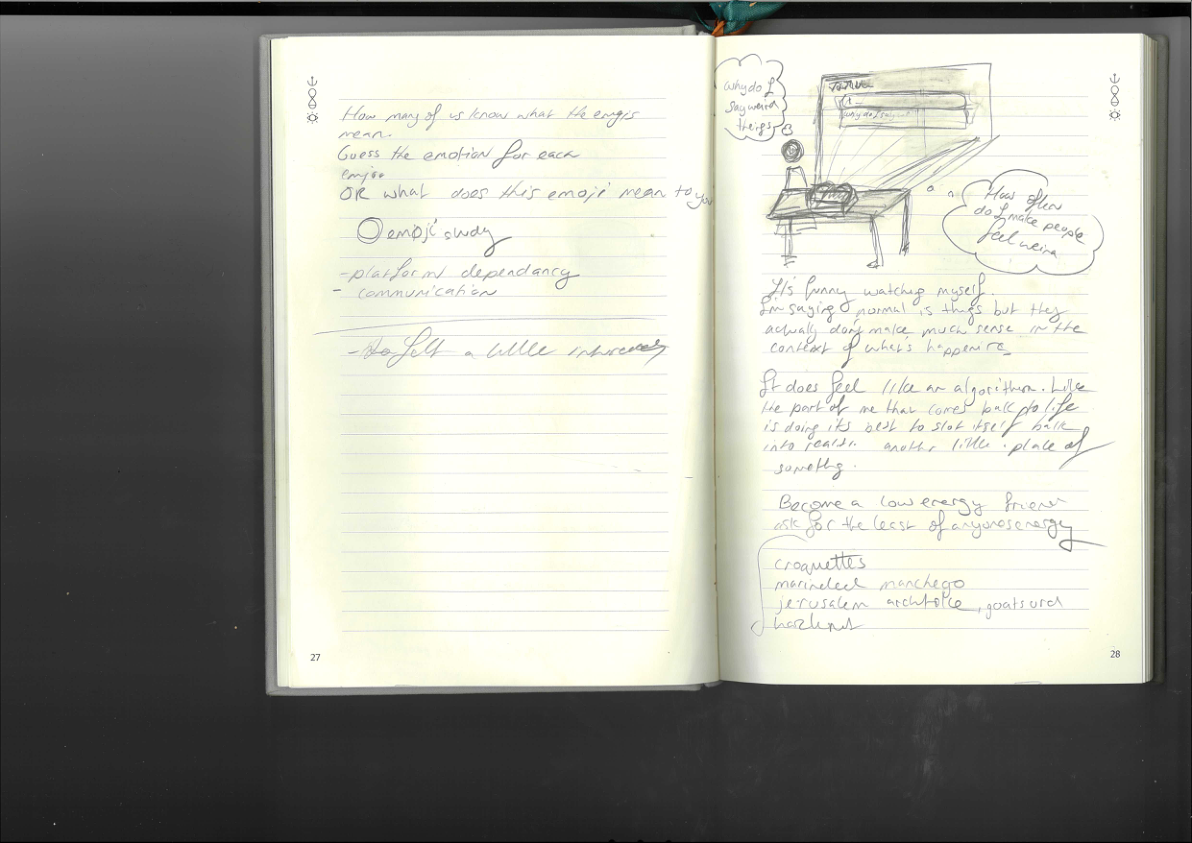 How many of us know what the emojis
mean.
Guess the emotion for each
emjio
OR what does this emoji mean to you
emoji study
- platform dependancy
- communication
- felt a little
27
why do I
say weird
things
why do I say
How often
do I make people
feel weird
It's funny watching myself.
I'm saying normal is things but they
actually don't make much sense in the
context of what's happening
It does feel like an algorithm. Like
the part of me that comes back to life
is doing its best to slot itself back
into another little place of
something.
Become a low energy friend
ask for the least of anyones energy
croquettes
marinated manchego
jerusalem artichoke, goats curd
hazlenut
28